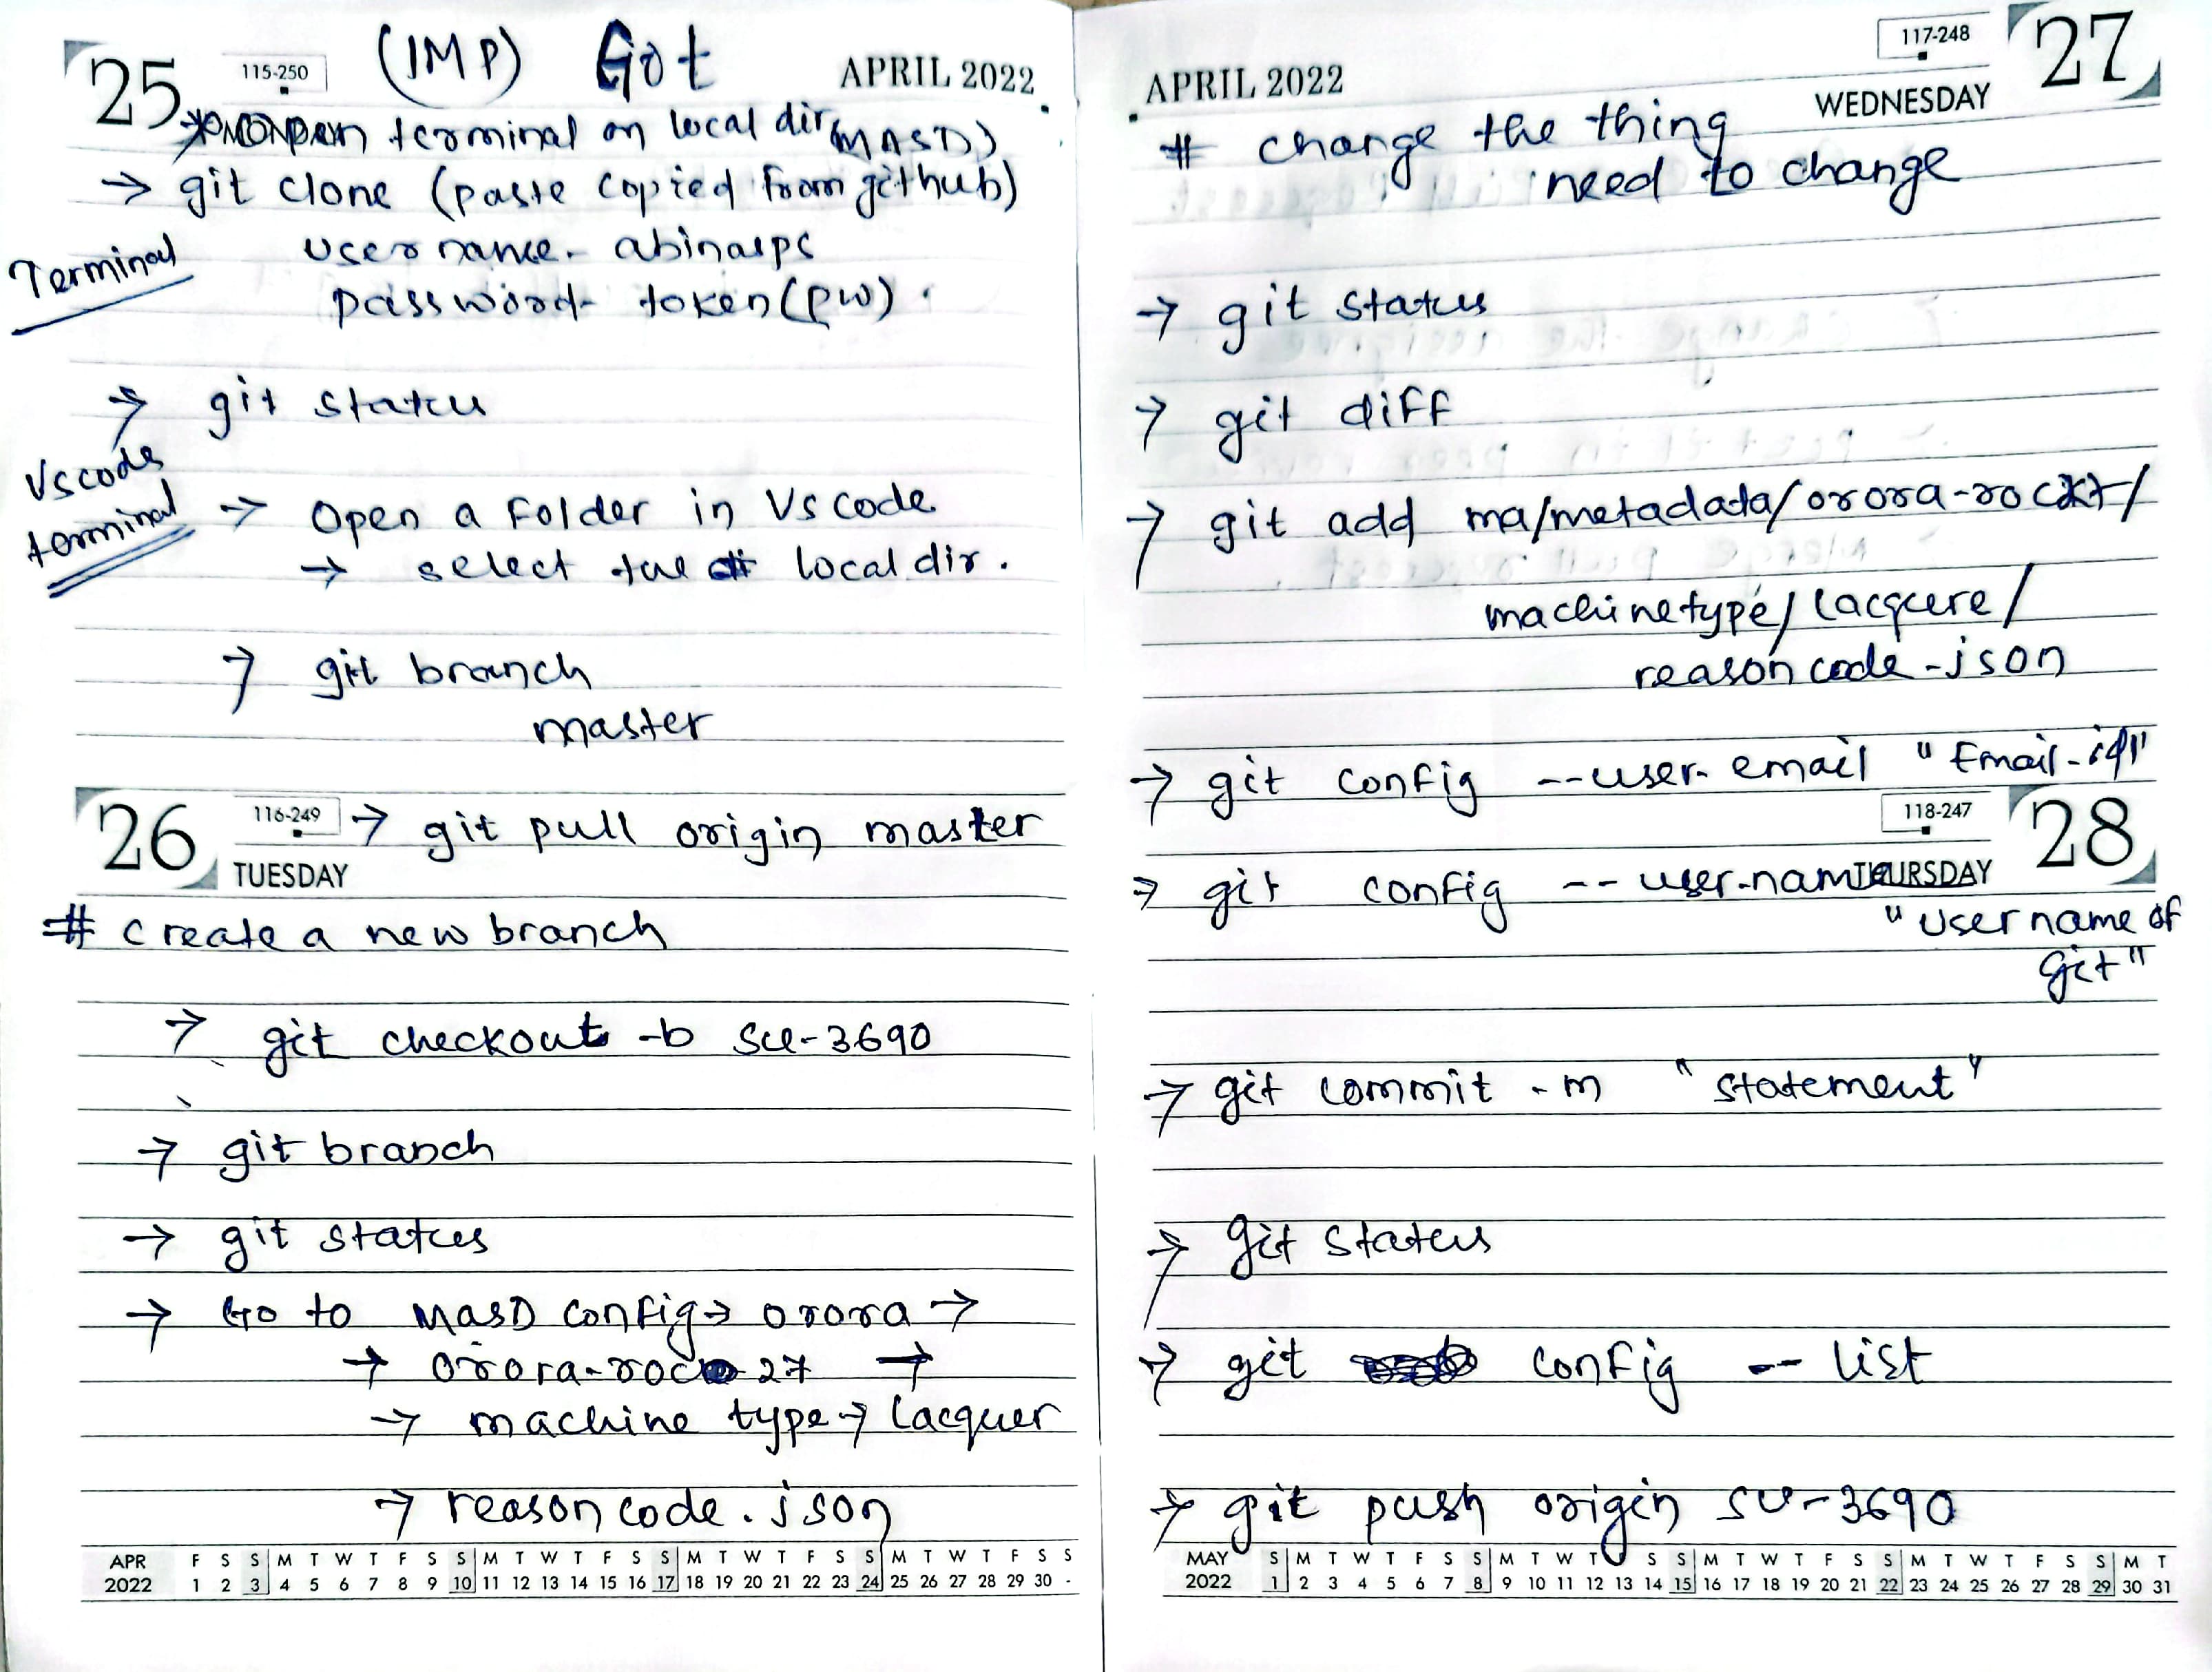 25
115-250
(IMP) Got
APRIL 2022
terminal on local dir (MASD)
→ git clone (paste copied from github)
Terminal
user name - abinasps
password - token (pw).
→ git status
Vscode
terminal
→ Open a Folder in Vs code
→ select the local dir.
→ git branch
master
26
116-249
TUESDAY
→ git pull origin master
# create a new branch
→ git checkout -b su-3690
→ git branch
→ git status
→ Go to MASD config → orora →
→ orora-roc 27 →
→ machine type → Lacquer
→ reason code.json
APR F S S M T W T F S S M T W T F S S M T W T F S S M T W T F S S
2022 1 2 3 4 5 6 7 8 9 10 11 12 13 14 15 16 17 18 19 20 21 22 23 24 25 26 27 28 29 30 -
APRIL 2022
117-248
27
WEDNESDAY
# change the thing
need to change
→ git status
→ git diff
→ git add ma/metadata/orora-
machinetype/lacquere/
reason code-json
→ git config --user.email "Email-id"
118-247
28
THURSDAY
→ git config --user.name
"User name of
git"
→ git commit -m "statement"
→ git status
→ git config -- list
→ git push origin su-3690
MAY S M T W T S S M T W T F S S M T W T F S S M T W T F S S M T
2022 1 2 3 4 5 6 7 8 9 10 11 12 13 14 15 16 17 18 19 20 21 22 23 24 25 26 27 28 29 30 31